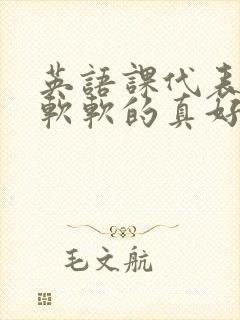 英語課代表
軟軟的真好
毛文航